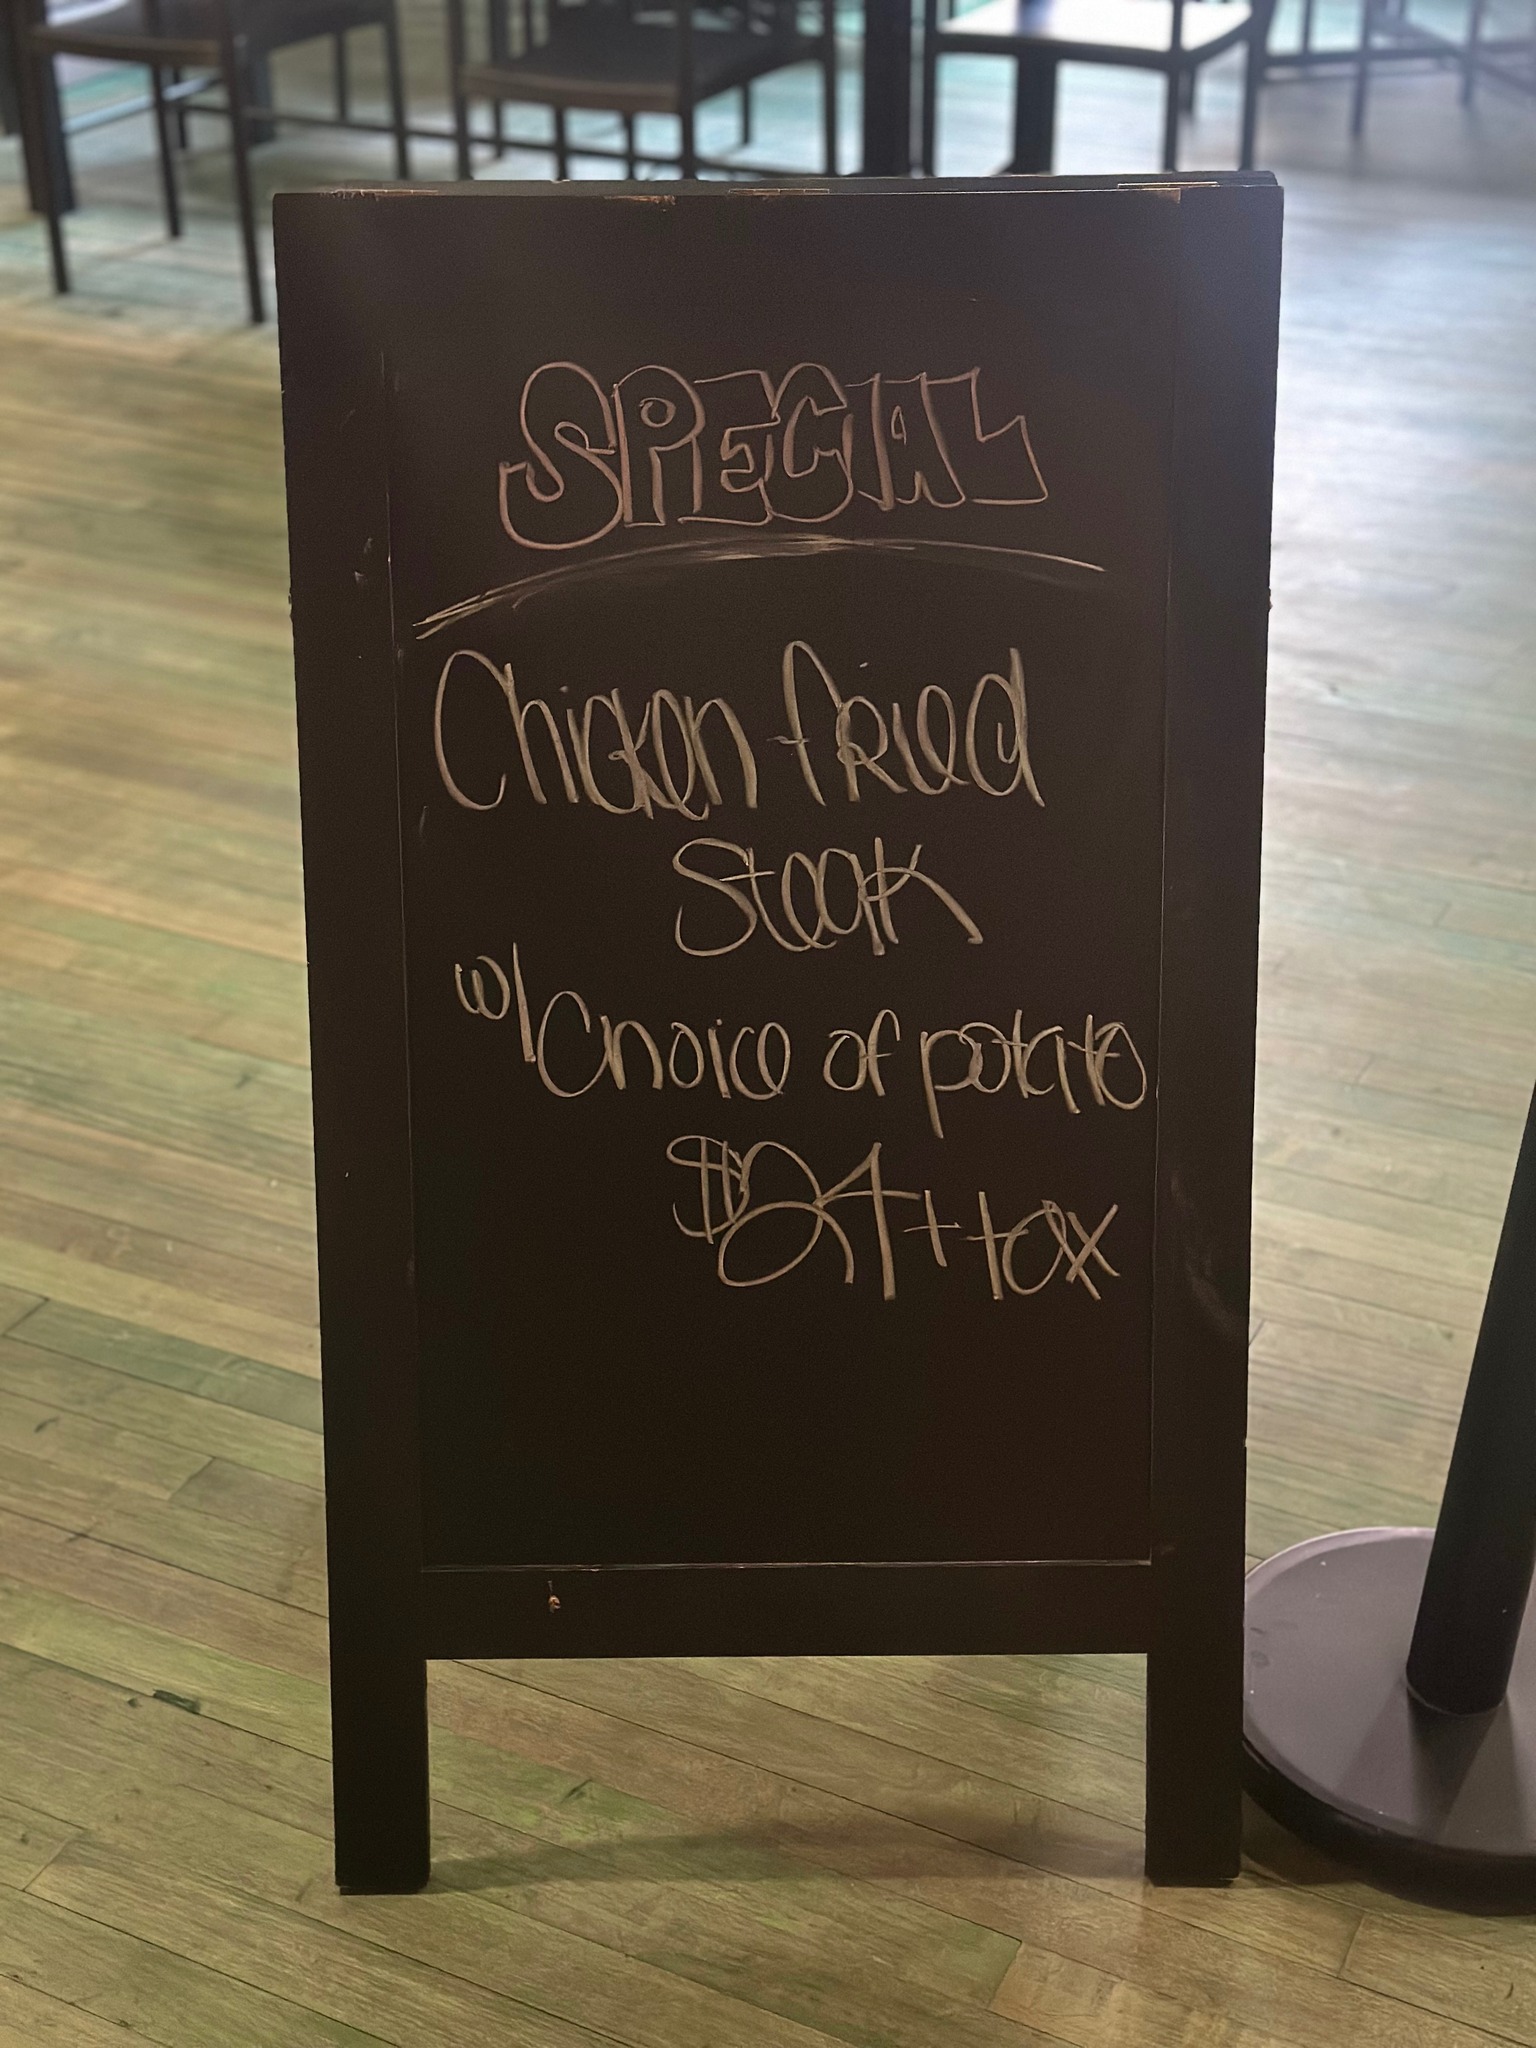 SPECIAL
Chicken fried
Steak
w/ Choice of potato
$24 + tax